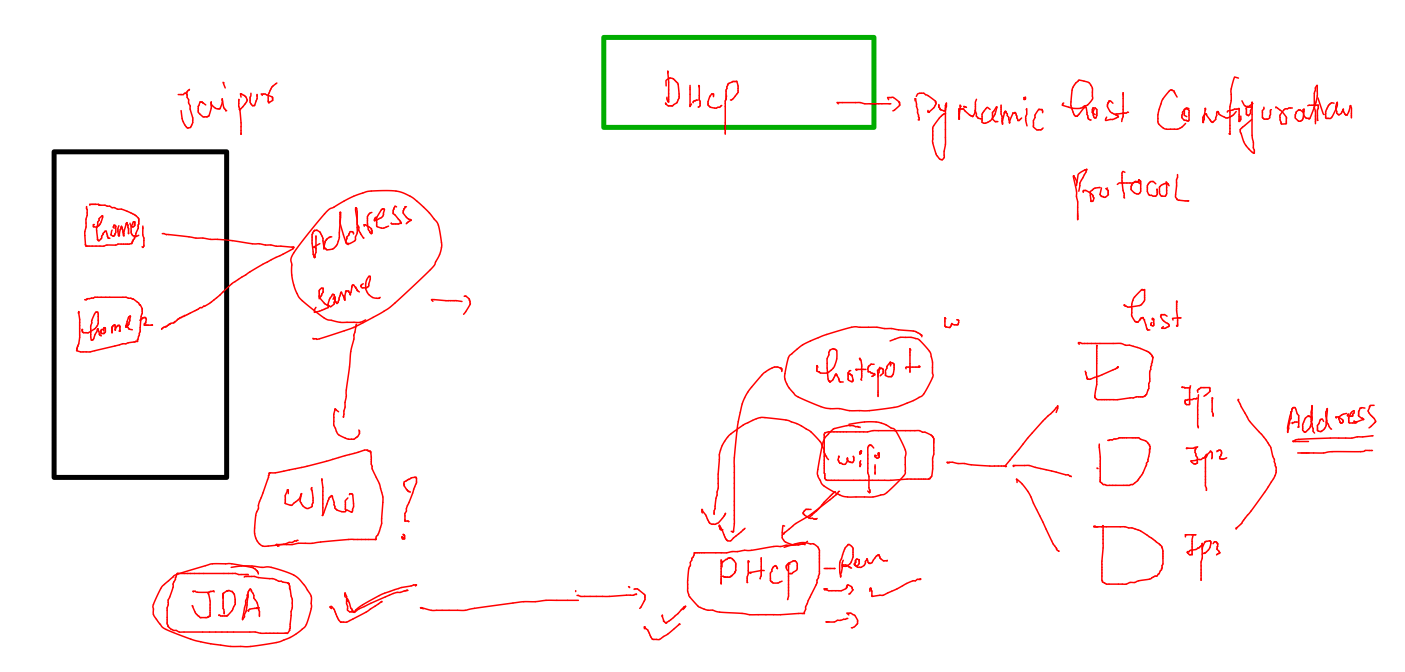 Jaipur
DHCP
Dynamic host Configuration
Protocol
home1
home2
Address
same
who ?
JDA
hotspot
w
wifi
DHCP
host
IP1
IP2
IP3
Address